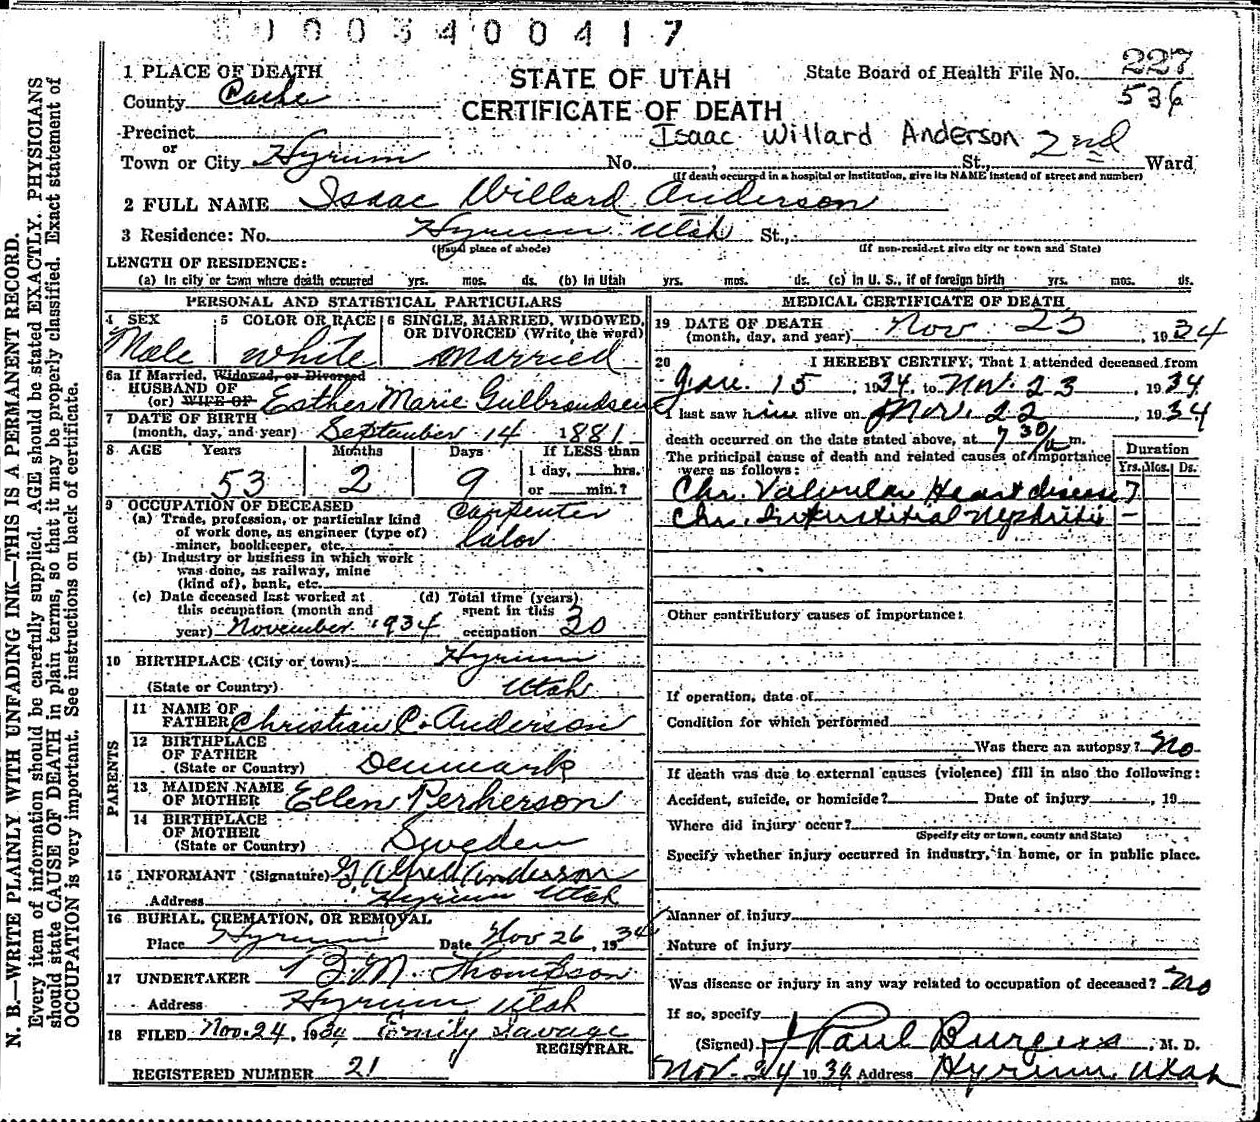 0003400417
1 PLACE OF DEATH
STATE OF UTAH
State Board of Health File No. 227
County Cache
CERTIFICATE OF DEATH
536
Precinct
Isaac Willard Anderson 2nd
or
Town or City Hyrum No. , St., Ward
(If death occurred in a hospital or institution, give its NAME instead of street and number)
2 FULL NAME Isaac Willard Anderson
3 Residence: No. Hyrum Utah St.,
(Usual place of abode) (If non-resident give city or town and State)
LENGTH OF RESIDENCE:
(a) In city or town where death occurred yrs. mos. ds. (b) In Utah yrs. mos. ds. (c) in U. S., if of foreign birth yrs. mos. ds.
PERSONAL AND STATISTICAL PARTICULARS
4 SEX Male
5 COLOR OR RACE white
6 SINGLE, MARRIED, WIDOWED,
OR DIVORCED (Write the word)
Married
6a If Married, Widowed, or Divorced
HUSBAND OF
(or) WIFE OF Esther Marie Gulbrandsen
7 DATE OF BIRTH
(month, day, and year) September 14 1881
8 AGE Years Months Days If LESS than
1 day, hrs.
53 2 9 or min.?
9 OCCUPATION OF DECEASED Carpenter
(a) Trade, profession, or particular kind
of work done, as engineer (type of)
miner, bookkeeper, etc. labor
(b) Industry or business in which work
was done, as railway, mine
(kind of), bank, etc.
(c) Date deceased last worked at
this occupation (month and
year) November 1934
(d) Total time (years)
spent in this
occupation 30
10 BIRTHPLACE (City or town) Hyrum
(State or Country) Utah
PARENTS
11 NAME OF
FATHER Christian C. Anderson
12 BIRTHPLACE
OF FATHER
(State or Country) Denmark
13 MAIDEN NAME
OF MOTHER Ellen Perherson
14 BIRTHPLACE
OF MOTHER
(State or Country) Sweden
15 INFORMANT (Signature) Alfred Anderson
Address Hyrum Utah
16 BURIAL, CREMATION, OR REMOVAL
Place Hyrum Date Nov 26, 1934
17 UNDERTAKER B. M. Thompson
Address Hyrum Utah
18 FILED Nov. 24, 1934 Emily Savage
REGISTRAR.
REGISTERED NUMBER 21
MEDICAL CERTIFICATE OF DEATH
19 DATE OF DEATH
(month, day, and year) Nov 23, 1934
20 I HEREBY CERTIFY, That I attended deceased from
Jan. 15, 1934, to Nov. 23, 1934
I last saw him alive on Nov. 22, 1934
death occurred on the date stated above, at 7 30/a m.
The principal cause of death and related causes of importance
were as follows:
Duration
Yrs. Mos. Ds.
Chr. Valvular Heart disease 7
Chr. Interstitial Nephritis —
Other contributory causes of importance:
If operation, date of
Condition for which performed
Was there an autopsy? No
If death was due to external causes (violence) fill in also the following:
Accident, suicide, or homicide? Date of injury , 19
Where did injury occur?
(Specify city or town, county and State)
Specify whether injury occurred in industry, in home, or in public place.
Manner of injury
Nature of injury
Was disease or injury in any way related to occupation of deceased? No
If so, specify
(Signed) J Paul Burgess, M. D.
Nov. 24 1934 Address Hyrum, Utah
N. B.—WRITE PLAINLY WITH UNFADING INK—THIS IS A PERMANENT RECORD.
Every item of information should be carefully supplied. AGE should be stated EXACTLY. PHYSICIANS
should state CAUSE OF DEATH in plain terms, so that it may be properly classified. Exact statement of
OCCUPATION is very important. See instructions on back of certificate.